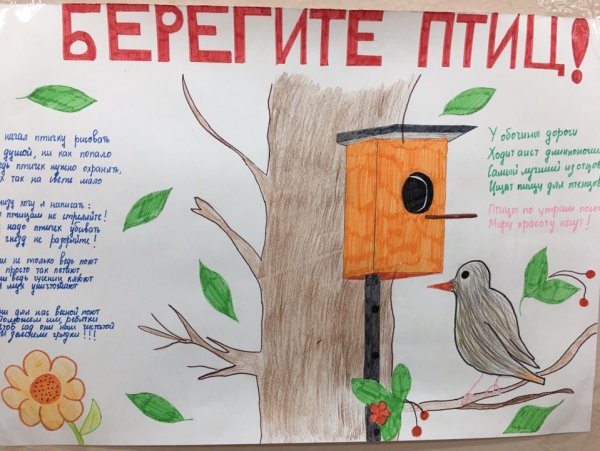 БЕРЕГИТЕ ПТИЦ!
начал птичку рисовать
душой, ни как попало
птичек нужно охранять,
так на свете мало
хочу я написать:
птицам не стреляйте!
надо птичек убивать
гнезд не разоряйте!
не только ведь поют
просто так летают
ведь гусениц клюют
мух уничтожают
для нас весной поют
им, ребятки
сад они нам
грядки!!!
У обочины дороги
Ходит аист
Самый лучший из отцов
Ищет пищу для птенцов
Птицы по утрам поют
Миру красоту несут!